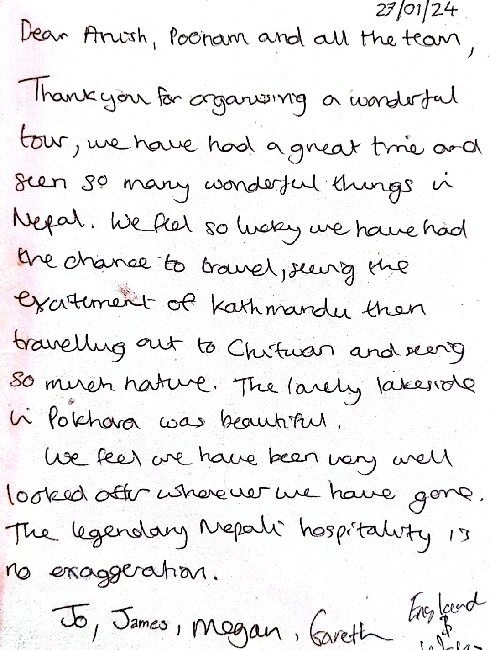 27/01/24
Dear Anish, Poonam and all the team,
Thank you for organising a wonderful
tour, we have had a great time and
seen so many wonderful things in
Nepal. We feel so lucky we have had
the chance to travel, seeing the
excitement of Kathmandu then
travelling out to Chitwan and seeing
so much nature. The lovely lakeside
in Pokhara was beautiful.
We feel we have been very well
looked after wherever we have gone.
The legendary Nepali hospitality is
no exaggeration.
Jo, James, Megan, Gareth
England
&